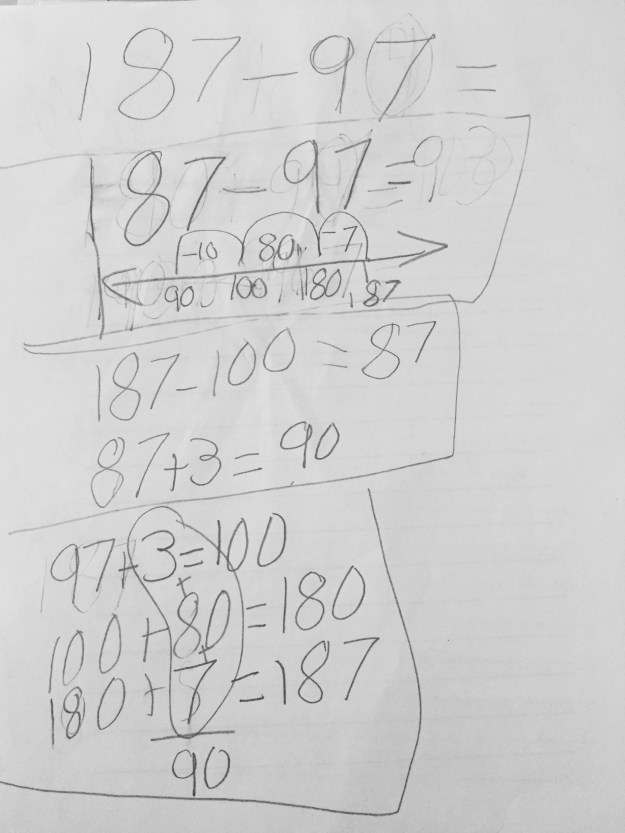 187-97=
187-97=
-10 80 -7
90 100 180 187
187-100=87
87+3=90
97+3=100
+
100+80=180
+
180+7=187
90